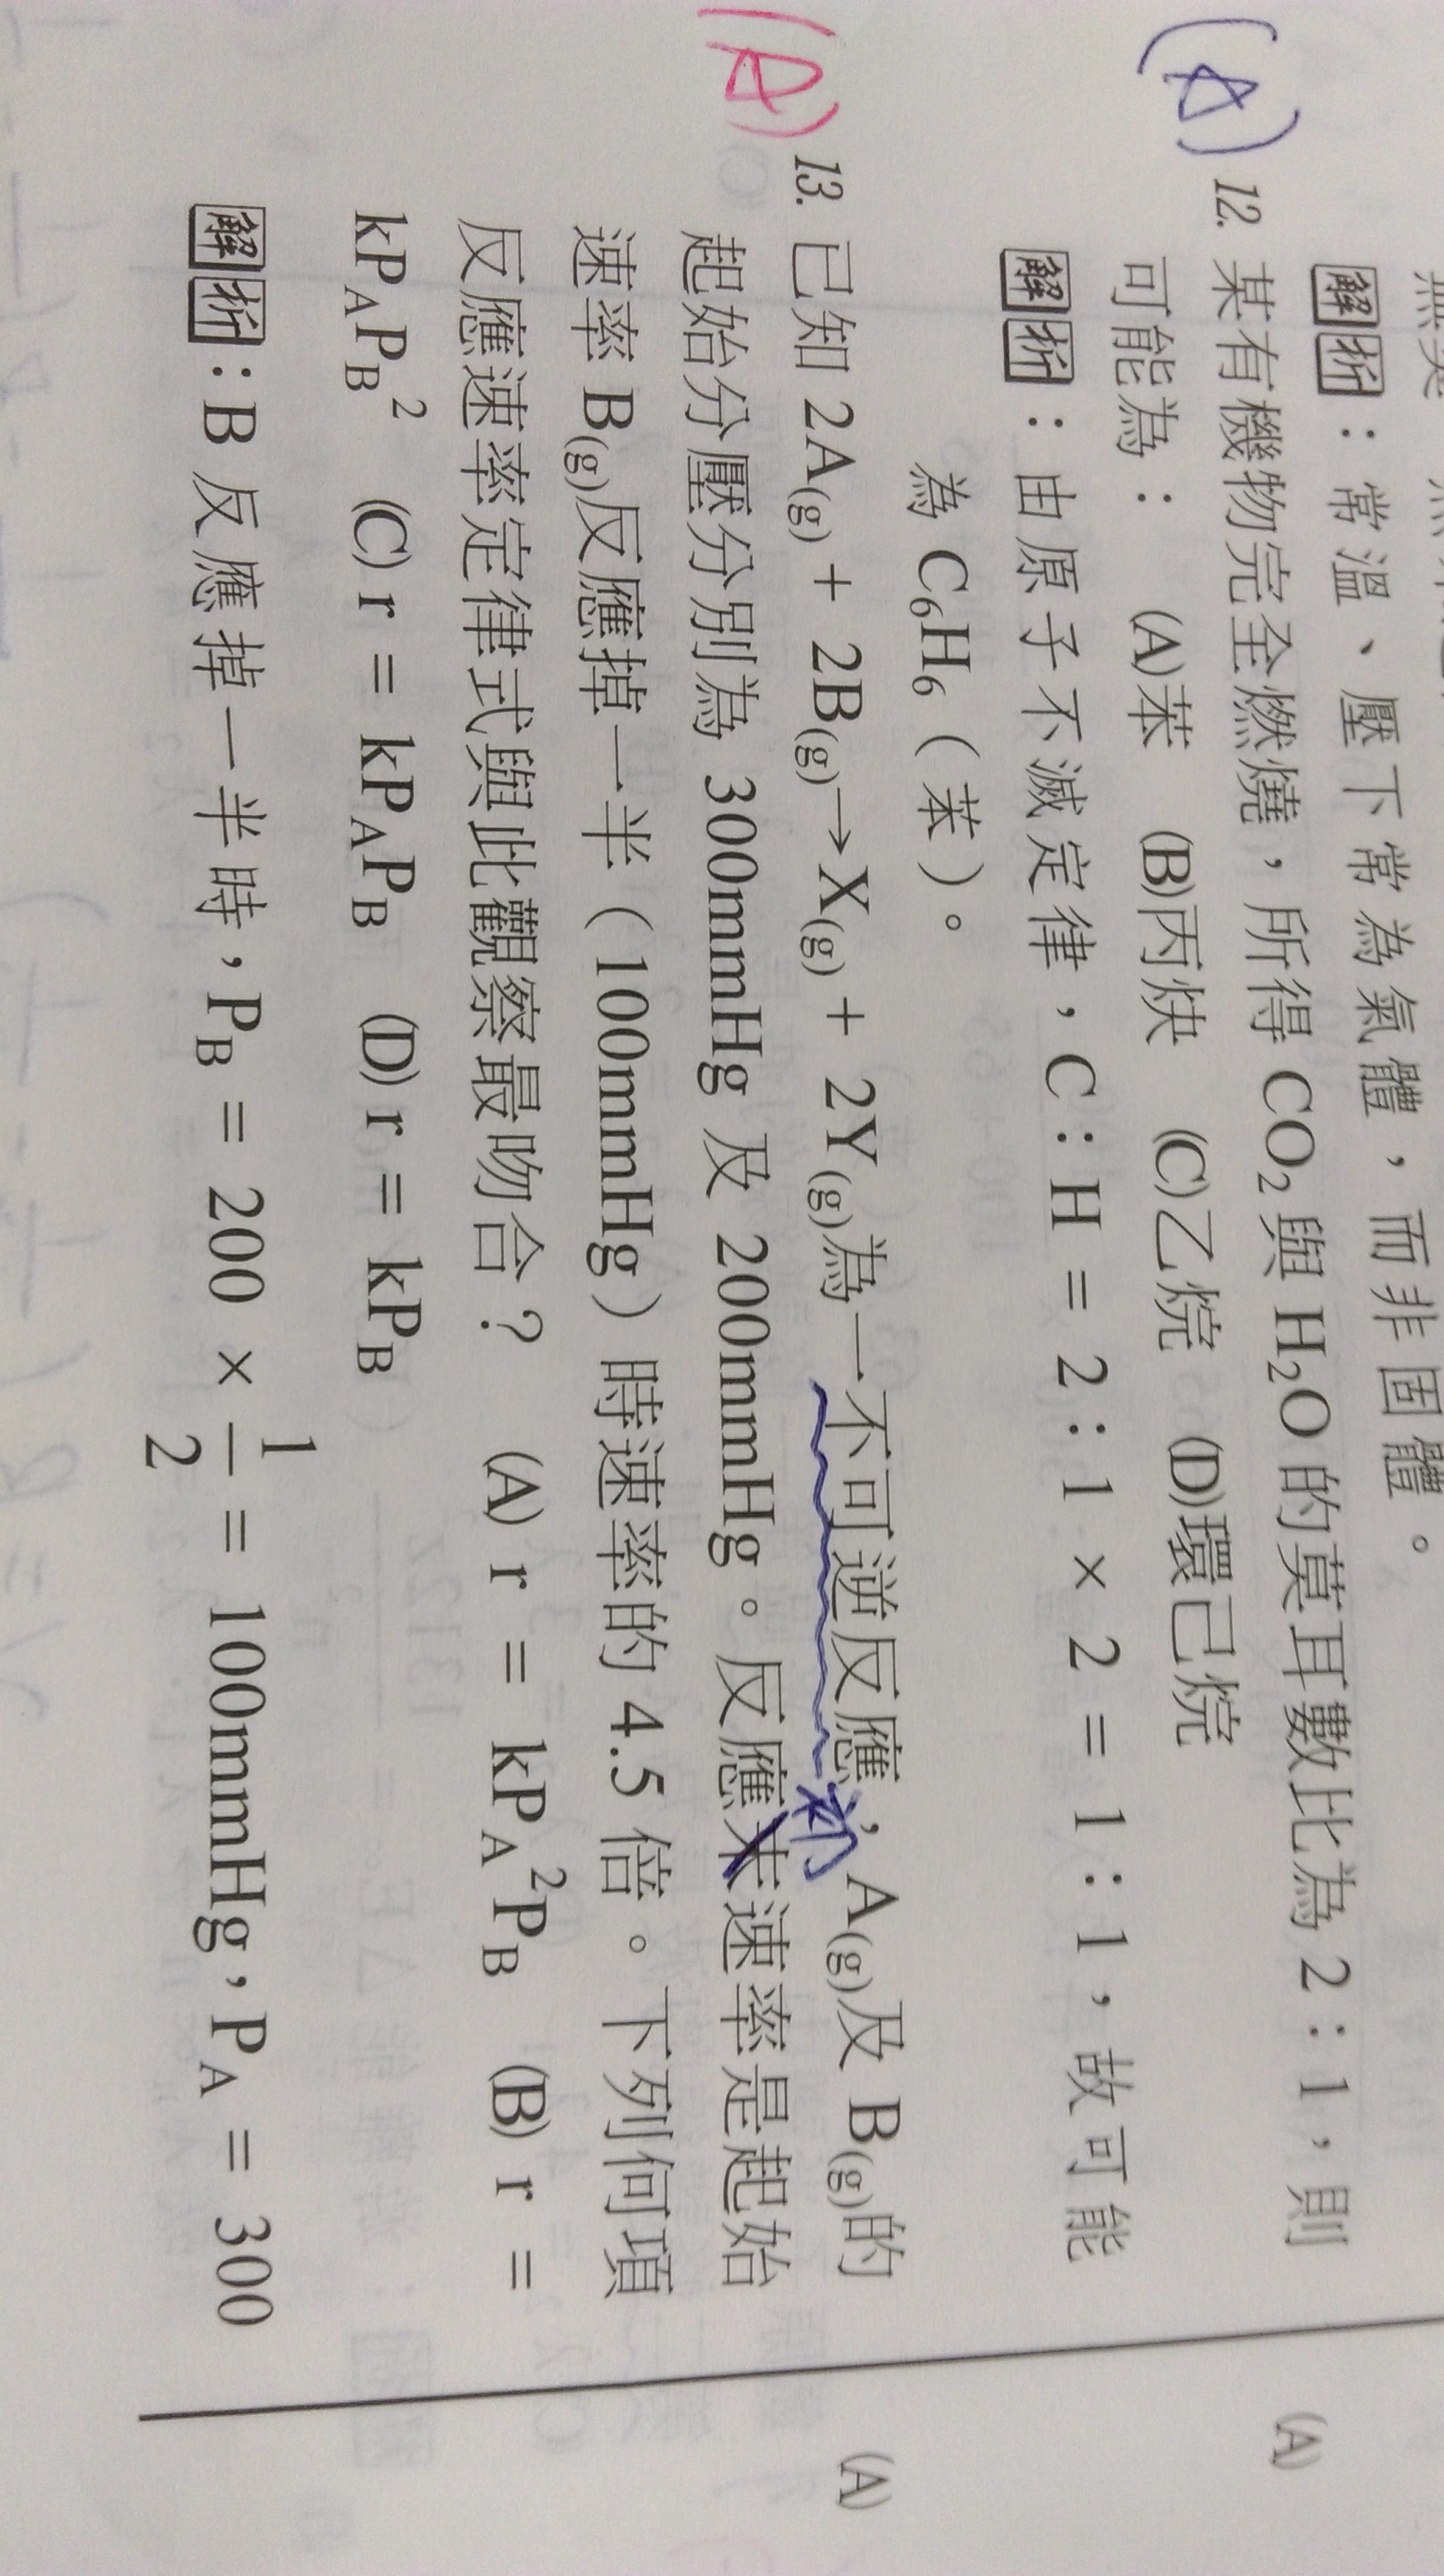 解析：常溫、壓下常為氣體，而非固體。
(A) 12. 某有機物完全燃燒，所得 CO₂ 與 H₂O 的莫耳數比為 2：1，則 (A)
可能為： (A)苯 (B)丙炔 (C)乙烷 (D)環己烷
解析：由原子不滅定律，C：H = 2：1 × 2 = 1：1，故可能
為 C₆H₆（苯）。
(A) 13. 已知 2A(g) + 2B(g)→X(g) + 2Y(g)為一不可逆反應，A(g)及 B(g)的 (A)
初
起始分壓分別為 300mmHg 及 200mmHg。反應末速率是起始
速率 B(g)反應掉一半（100mmHg）時速率的 4.5 倍。下列何項
反應速率定律式與此觀察最吻合？ (A) r = kP_A²P_B (B) r =
kP_AP_B² (C) r = kP_AP_B (D) r = kP_B
解析：B 反應掉一半時，P_B = 200 × 1/2 = 100mmHg，P_A = 300